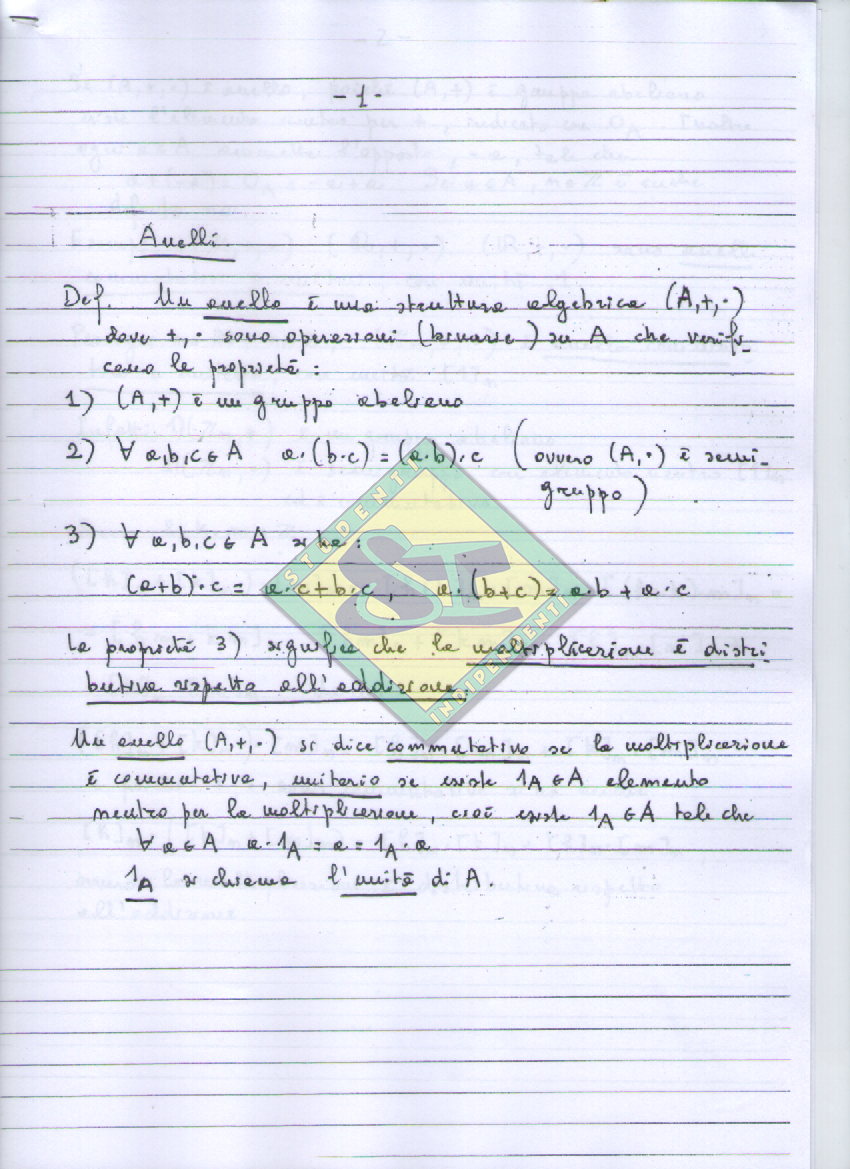 - 1 -
Anelli
Def. Un anello è una struttura algebrica (A,+,·)
dove +,· sono operazioni (binarie) su A che verifi-
cano le proprietà:
1) (A,+) è un gruppo abeliano
2) ∀ a,b,c ∈ A a·(b·c) = (a·b)·c (ovvero (A,·) è semi-
gruppo)
3) ∀ a,b,c ∈ A si ha:
(a+b)·c = a·c+b·c, a·(b+c) = a·b + a·c
La proprietà 3) significa che la moltiplicazione è distri-
butiva rispetto all'addizione.
Un anello (A,+,·) si dice commutativo se la moltiplicazione
è commutativa, unitario se esiste 1_A ∈ A elemento
neutro per la moltiplicazione, cioè esiste 1_A ∈ A tale che
∀ a ∈ A a·1_A = a = 1_A·a
1_A si chiama l'unità di A
STUDENTI
SI
INDIPENDENTI